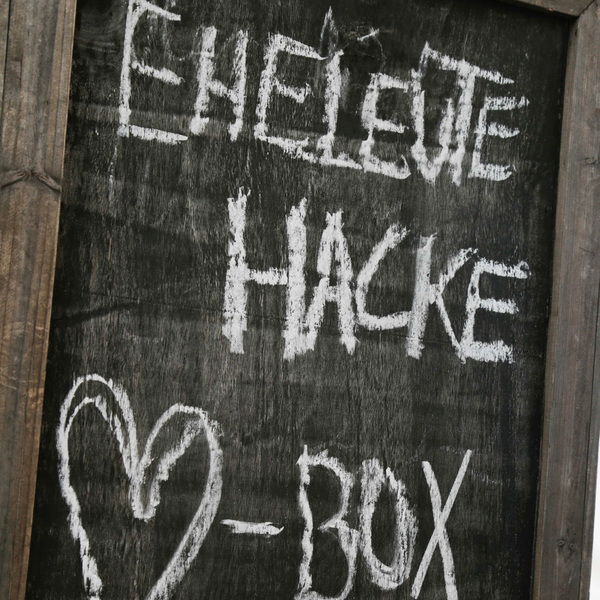 EHELEUTE
HACKE
♡-BOX